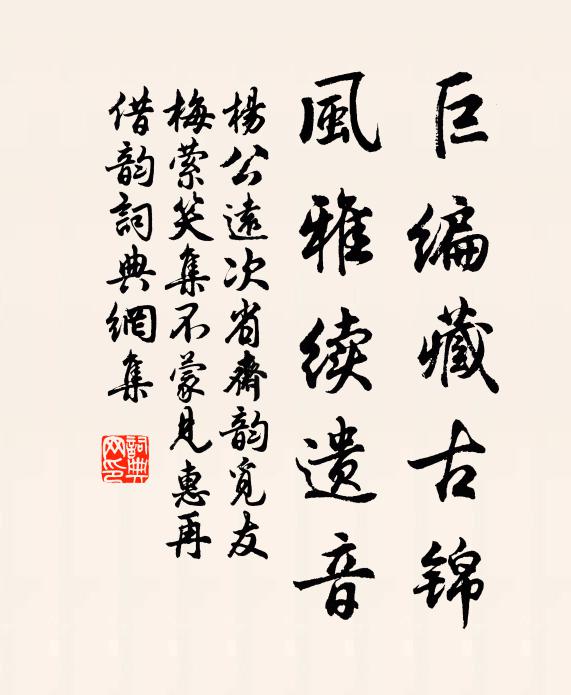 巨编藏古锦
風雅续遗音
楊公遠次省齋韵覓友
梅萦笑集不蒙見惠再
借韵詞典網集
詞典网印